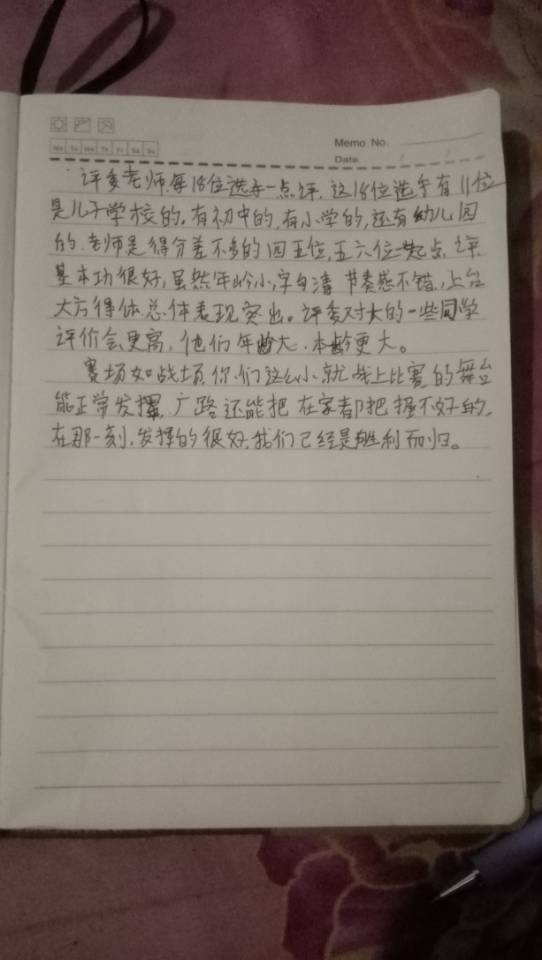 Mo Tu We Th Fr Sa Su
Memo No.
Date / /
评委老师每18位选手一点评.这18位选手有11位
是儿子学校的.有初中的,有小学的,还有幼儿园
的.老师是得分差不多的四五位,五六位一起点评
基本功很好,虽然年龄小,字句清 节奏感不错,上台
大方得体总体表现突出。评委对大的一些同学
评价会更高,他们年龄大.本龄更大。
赛场如战场.你们这么小就战上比赛的舞台
能正常发挥.广路还能把在家都把握不好的.
在那一刻.发挥的很好.我们已经是胜利而归。